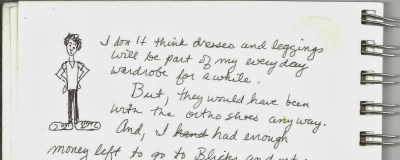 I don't think dresses and leggings
will be part of my everyday
wardrobe for a while.
But, they would have been
with the ortho shoes any way.
And, I hand had enough
money left to go to Blicks and